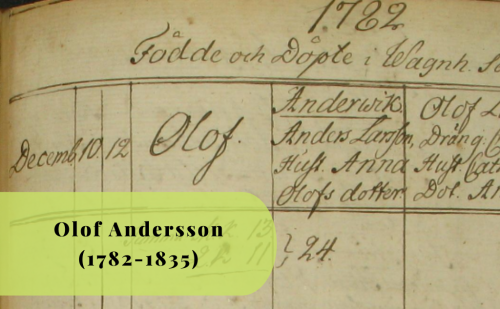 1782
Födde och Döpte i Wagnh.
Decemb. 10. 12
Olof.
Anderwik.
Anders Larsson,
Hust. Anna
Olofs dotter
Olof
Dräng
Hust.
Dot.
13
11 } 24.
Olof Andersson
(1782-1835)